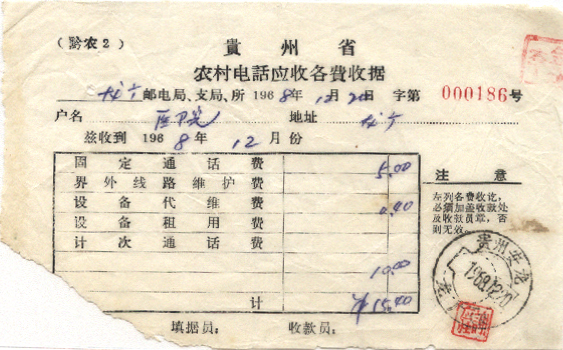 (黔农2)
貴州省
农村电話应收各費收据
龙广邮电局、支局、所 1968年12月20日 字第 000186号
户名 医院 地址 龙广
茲收到 1968年12月份
固定通話費 5.00
界外线路维护費
设备代维費 0.40
设备租用費
计次通話費
10.00
计 ¥15.40
注意
左列各費收讫,
必須加盖收款处
及收款员章,否
則无效。
貴州安龙
1968.12.20
填据员: 收款员: